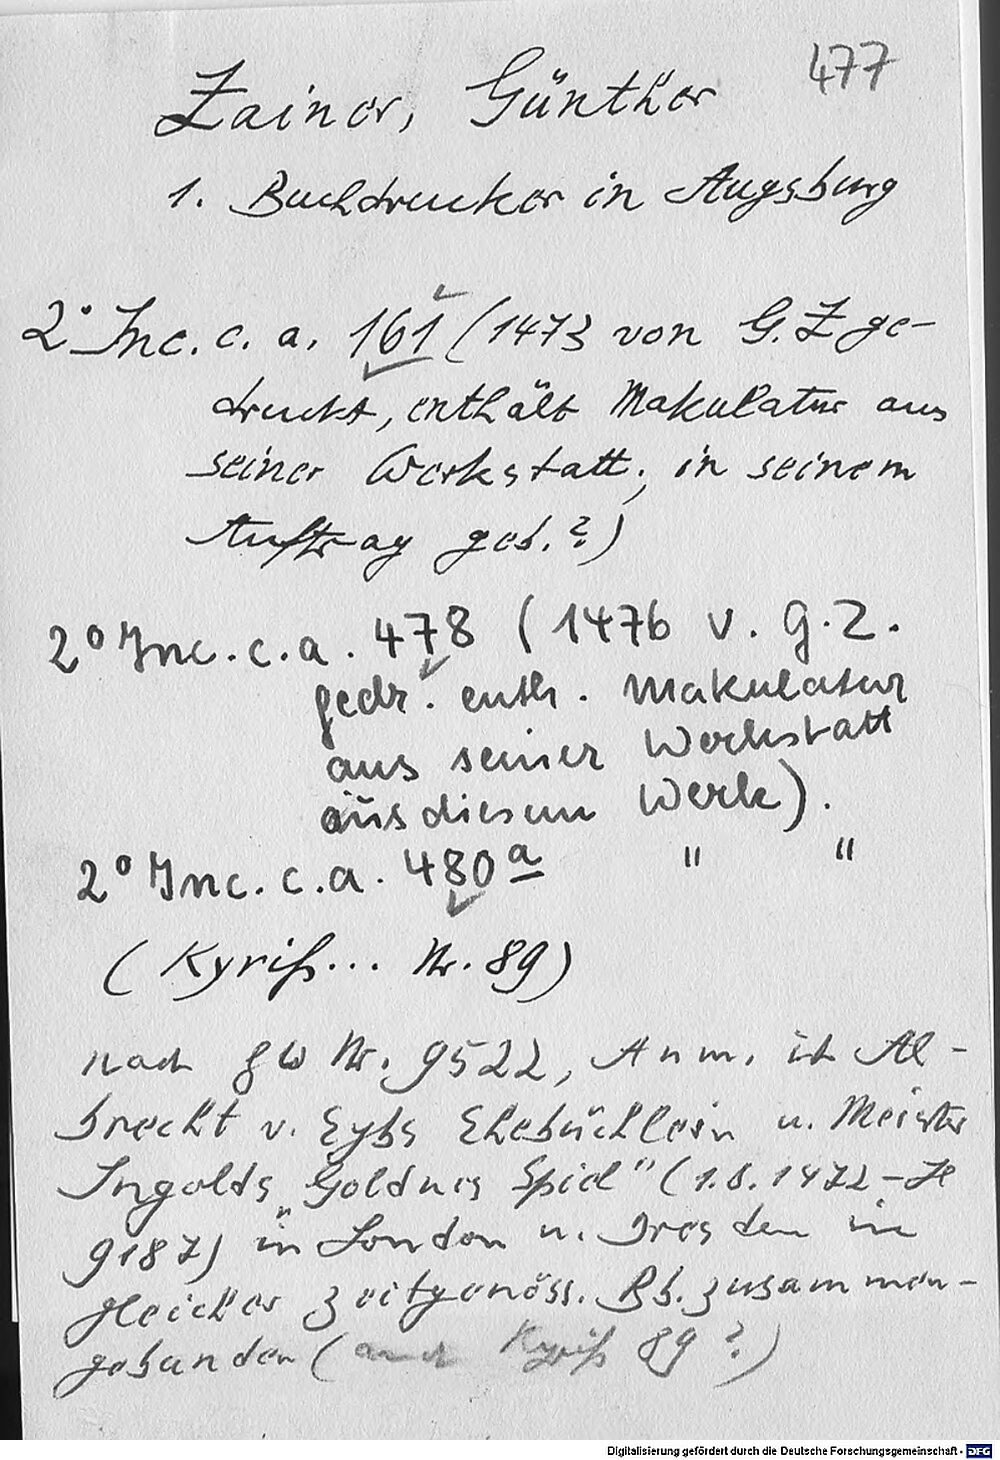 477
Zainer, Günther
1. Buchdrucker in Augsburg
2° Inc. c. a. 161 (1473 von G. Z ge-
druckt, enthält Makulatur aus
seiner Werkstatt; in seinem
Auftrag geb.?)
2° Inc. c. a. 478 (1476 v. G. Z.
gedr. enth. Makulatur
aus seiner Werkstatt
aus diesem Werk).
2° Inc. c. a. 480a " "
(Kyriß... Nr. 89)
nach GW Nr. 9522, Anm. ist Al-
brecht v. Eybs Ehebüchlein u. Meister
Ingolds "Goldnes Spiel" (1.8.1472 - H
9187) in London u. Dresden in
gleicher zeitgenöss. Bb. zusammen-
gebunden (auch Kyriß 89?)
Digitalisierung gefördert durch die Deutsche Forschungsgemeinschaft - DFG